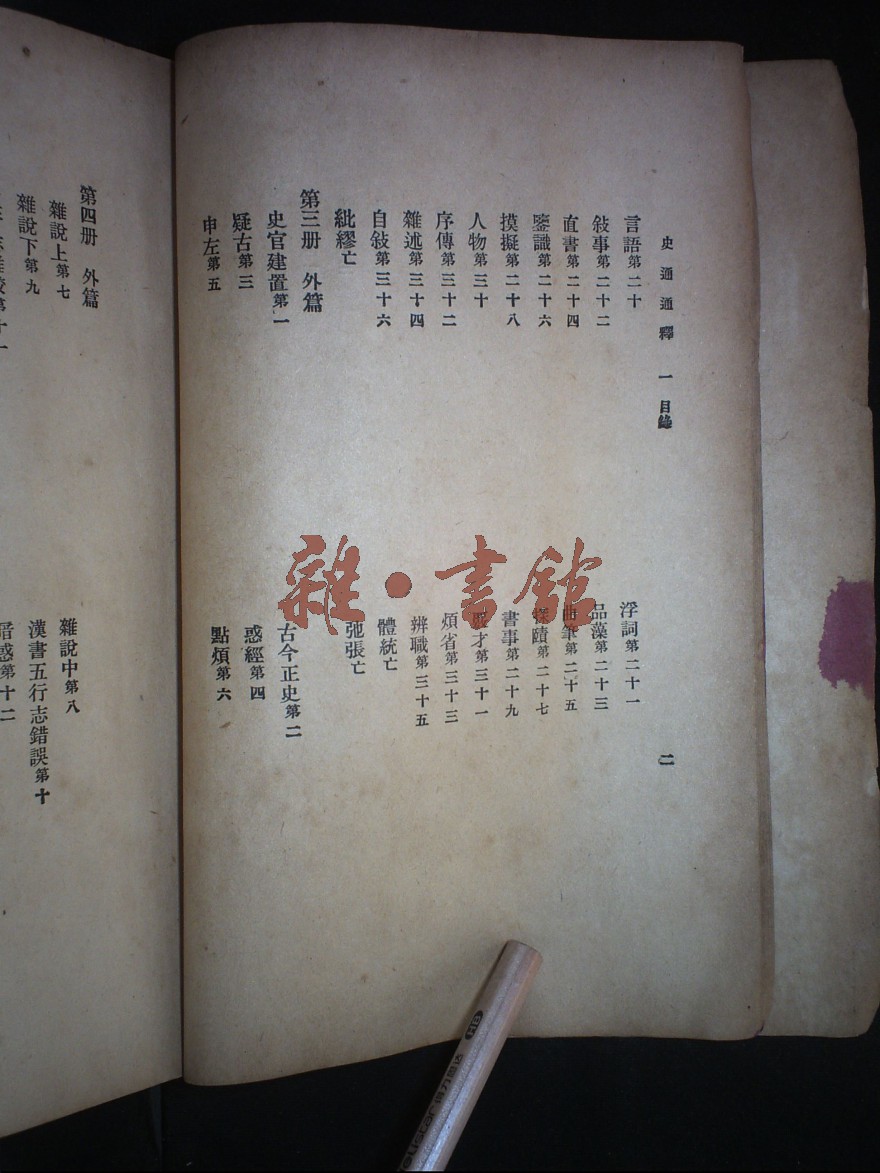 史通通釋 一 目錄 二
言語第二十 浮詞第二十一
敍事第二十二 品藻第二十三
直書第二十四 曲筆第二十五
鑒識第二十六 探賾第二十七
摸擬第二十八 書事第二十九
人物第三十 覈才第三十一
序傳第三十二 煩省第三十三
雜述第三十四 辨職第三十五
自敍第三十六 體統亡
紕繆亡 弛張亡
第三册 外篇
史官建置第一 古今正史第二
疑古第三 惑經第四
申左第五 點煩第六
第四册 外篇
雜說上第七 雜說中第八
雜說下第九 漢書五行志錯誤第十
暗惑第十二
雜·書館
HB